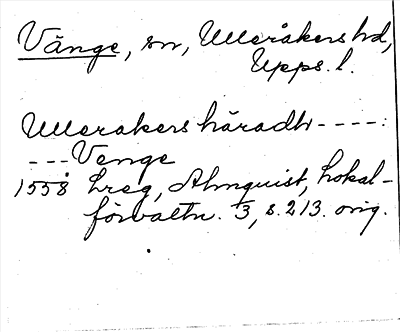 Vänge, sn, Ulleråkers hd,
Upps. l.
Ulleråkers häradh ----:
--- Venge
1558 Lreg, Almquist, Lokal-
förvaltn. 3, s. 213. orig.